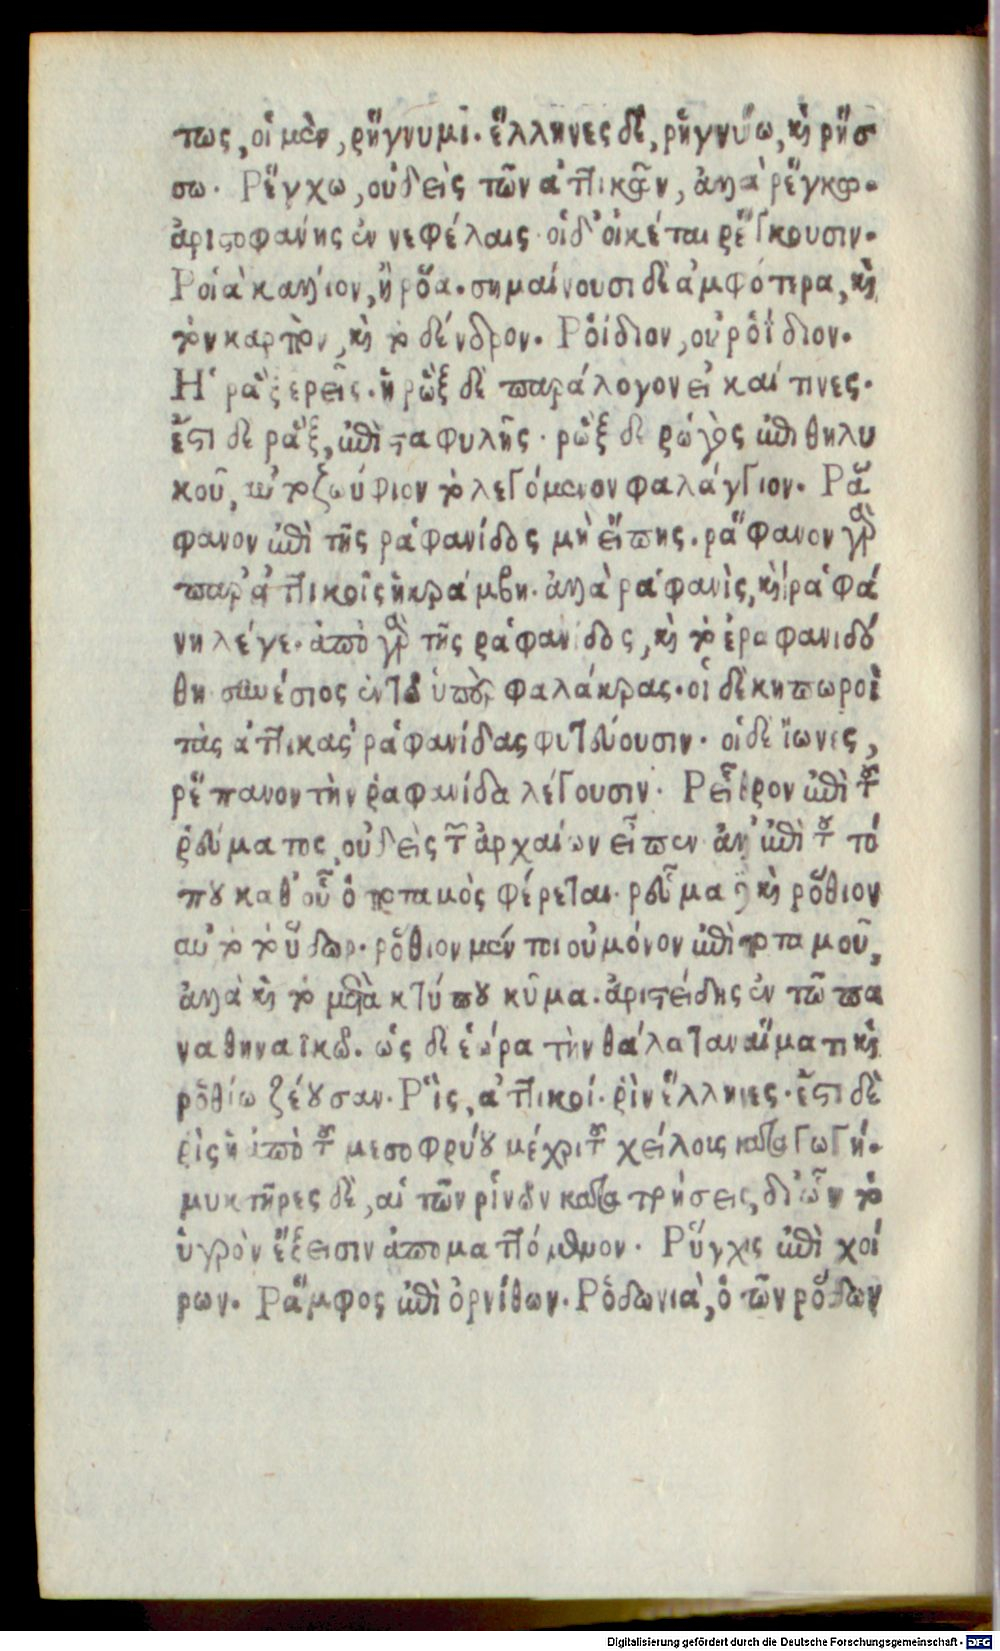 τως, οἱ μὲν, ῥήγνυμι. ἕλληνες δὲ, ῥηγνύω, καὶ ῥήσ
σω. Ῥέγχω, οὐδεὶς τῶν ἀττικῶν, ἀλλὰ ῥέγκω.
ἀριστοφάνης ἐν νεφέλαις· οἱ δ' οἰκέται ῥέγκουσιν.
Ῥοιὰ κάλλιον, ἢ ῥόα. σημαίνουσι δὲ ἀμφότερα, καὶ
τὸν καρπὸν, καὶ τὸ δένδρον. Ῥοίδιον, οὐ ῥοΐδιον.
Ἡ ῥὰξ ἐρεῖς. ἡ ῥὼξ δὲ παράλογον εἰ καί τινες.
ἔστι δὲ ῥὰξ, ἐπὶ σταφυλῆς. ῥὼξ δὲ ῥωγὸς ἐπὶ θηλυ
κοῦ, τὸ ζωύφιον τὸ λεγόμενον φαλάγγιον. Ῥά
φανον ἐπὶ τῆς ῥαφανίδος μὴ εἴπης. ῥάφανον γὰρ
παρ' ἀττικοῖς ἡ κράμβη. ἀλλὰ ῥαφανὶς, καὶ ῥαφά
νη λέγε. ἀπὸ γὰρ τῆς ῥαφανίδος, καὶ τὸ ἐραφανιδού
θη συνέσιος ἐν τῶ ὑπὲρ φαλάκρας. οἱ δὲ κηπωροὶ
τὰς ἀττικὰς ῥαφανίδας φυτεύουσιν. οἱ δὲ ἴωνες,
ῥέπανον τὴν ῥαφανίδα λέγουσιν. Ῥεῖθρον ἐπὶ τοῦ
ῥεύματος οὐδεὶς τῶν ἀρχαίων εἶπεν ἀλλ' ἐπὶ τοῦ τό
που καθ' οὗ ὁ ποταμὸς φέρεται. ῥεῦμα δὲ καὶ ῥόθιον
αὐτὸ τὸ ὕδωρ. ῥόθιον μέν τοι οὐ μόνον ἐπὶ ποταμοῦ,
ἀλλὰ καὶ τὸ μετὰ κτύπου κῦμα. ἀριστείδης ἐν τῶ πα
ναθηναϊκῶ. ὡς δὲ ἑώρα τὴν θάλατταν αἵματι καὶ
ῥοθίω ζέουσαν. Ῥὶς, ἀττικοί. ῥὶν ἕλληνες. ἔστι δὲ
ῥὶς ἡ ἀπὸ τοῦ μεσοφρύου μέχρι τοῦ χείλους καταγωγή.
μυκτῆρες δὲ, αἱ τῶν ῥινῶν κατατρήσεις, δι' ὧν τὸ
ὑγρὸν ἔξεισιν ἀποματτόμενον. Ῥύγχος ἐπὶ χοί
ρων. Ῥάμφος ἐπὶ ὀρνίθων. Ῥοδωνιὰ, ὁ τῶν ῥόδων
Digitalisierung gefördert durch die Deutsche Forschungsgemeinschaft - DFG